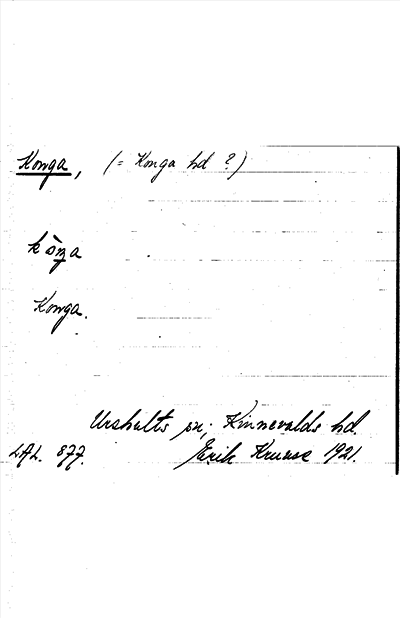 Konga, (= Konga hd ?)
kòŋa
Konga.
Urshults sn; Kinnevalds hd.
LAL. 877. Erik Kruuse 1921.